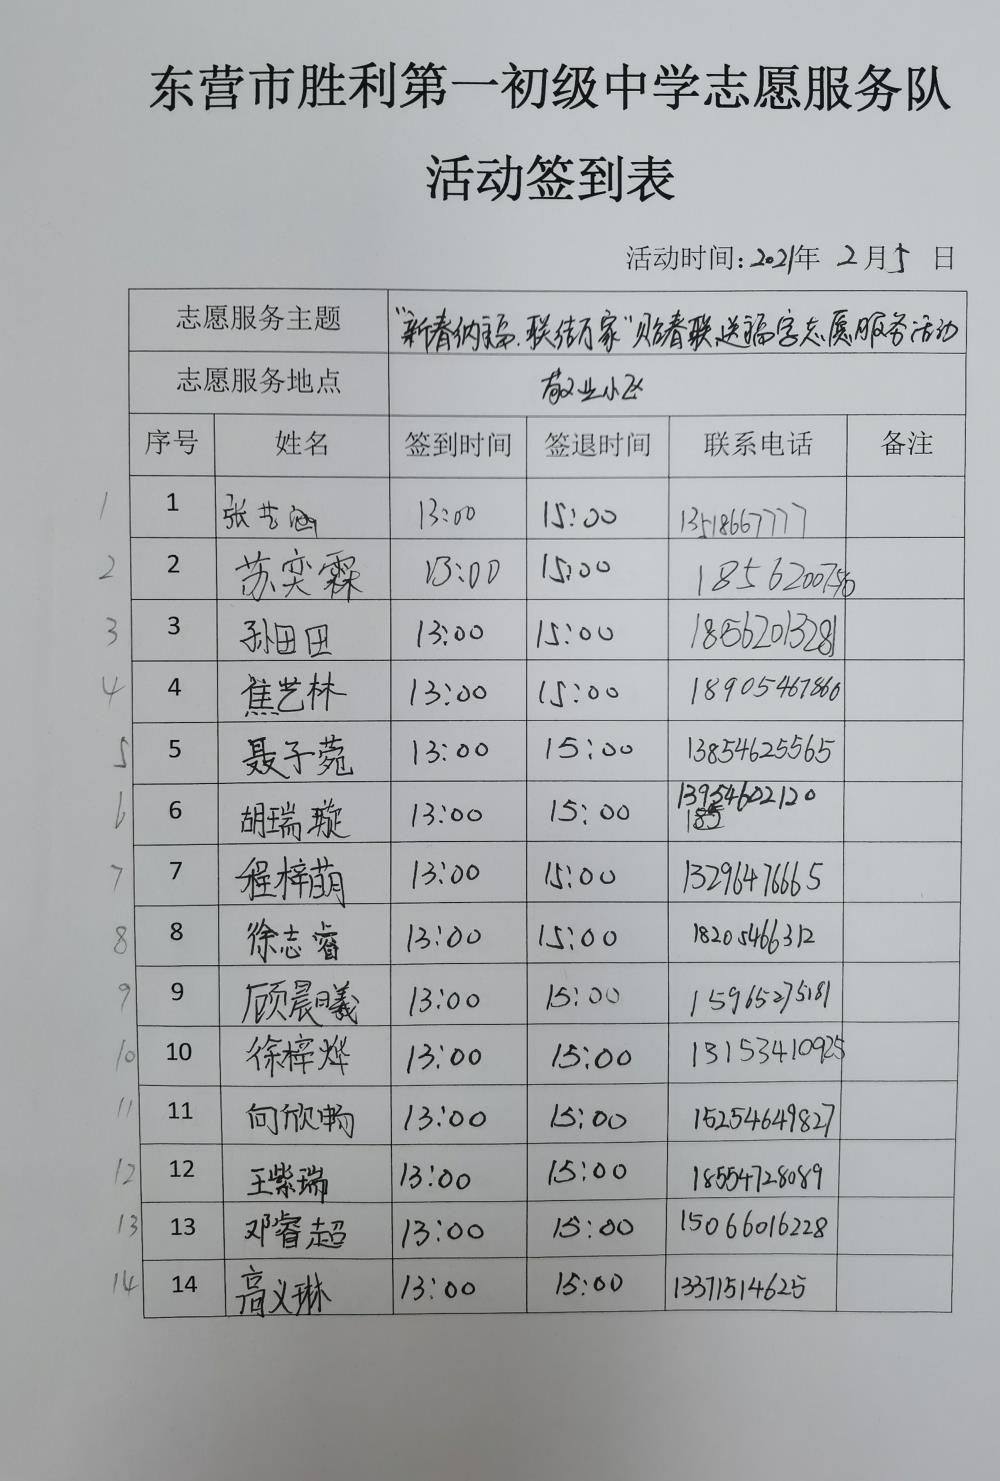 东营市胜利第一初级中学志愿服务队
活动签到表
活动时间:2021年 2月5 日
志愿服务主题 “新春纳福.联结万家”贴春联,送福字志愿服务活动
志愿服务地点 敬业小区
序号 姓名 签到时间 签退时间 联系电话 备注
1 1 张艺涵 13:00 15:00 13518667777
2 2 苏奕霖 13:00 15:00 1856200756
3 3 孙田田 13:00 15:00 18562013281
4 4 焦艺林 13:00 15:00 18905467860
5 5 聂子菀 13:00 15:00 13854625565
6 6 胡瑞璇 13:00 15:00 13954602120
185
7 7 程梓萌 13:00 15:00 13296476665
8 8 徐志睿 13:00 15:00 18205466312
9 9 顾晨曦 13:00 15:00 15965275181
10 10 徐梓烨 13:00 15:00 13153410925
11 11 向欣畅 13:00 15:00 15254649827
12 12 王紫瑞 13:00 15:00 18554728089
13 13 邓睿超 13:00 15:00 15066016228
14 14 高义琳 13:00 15:00 13371514625